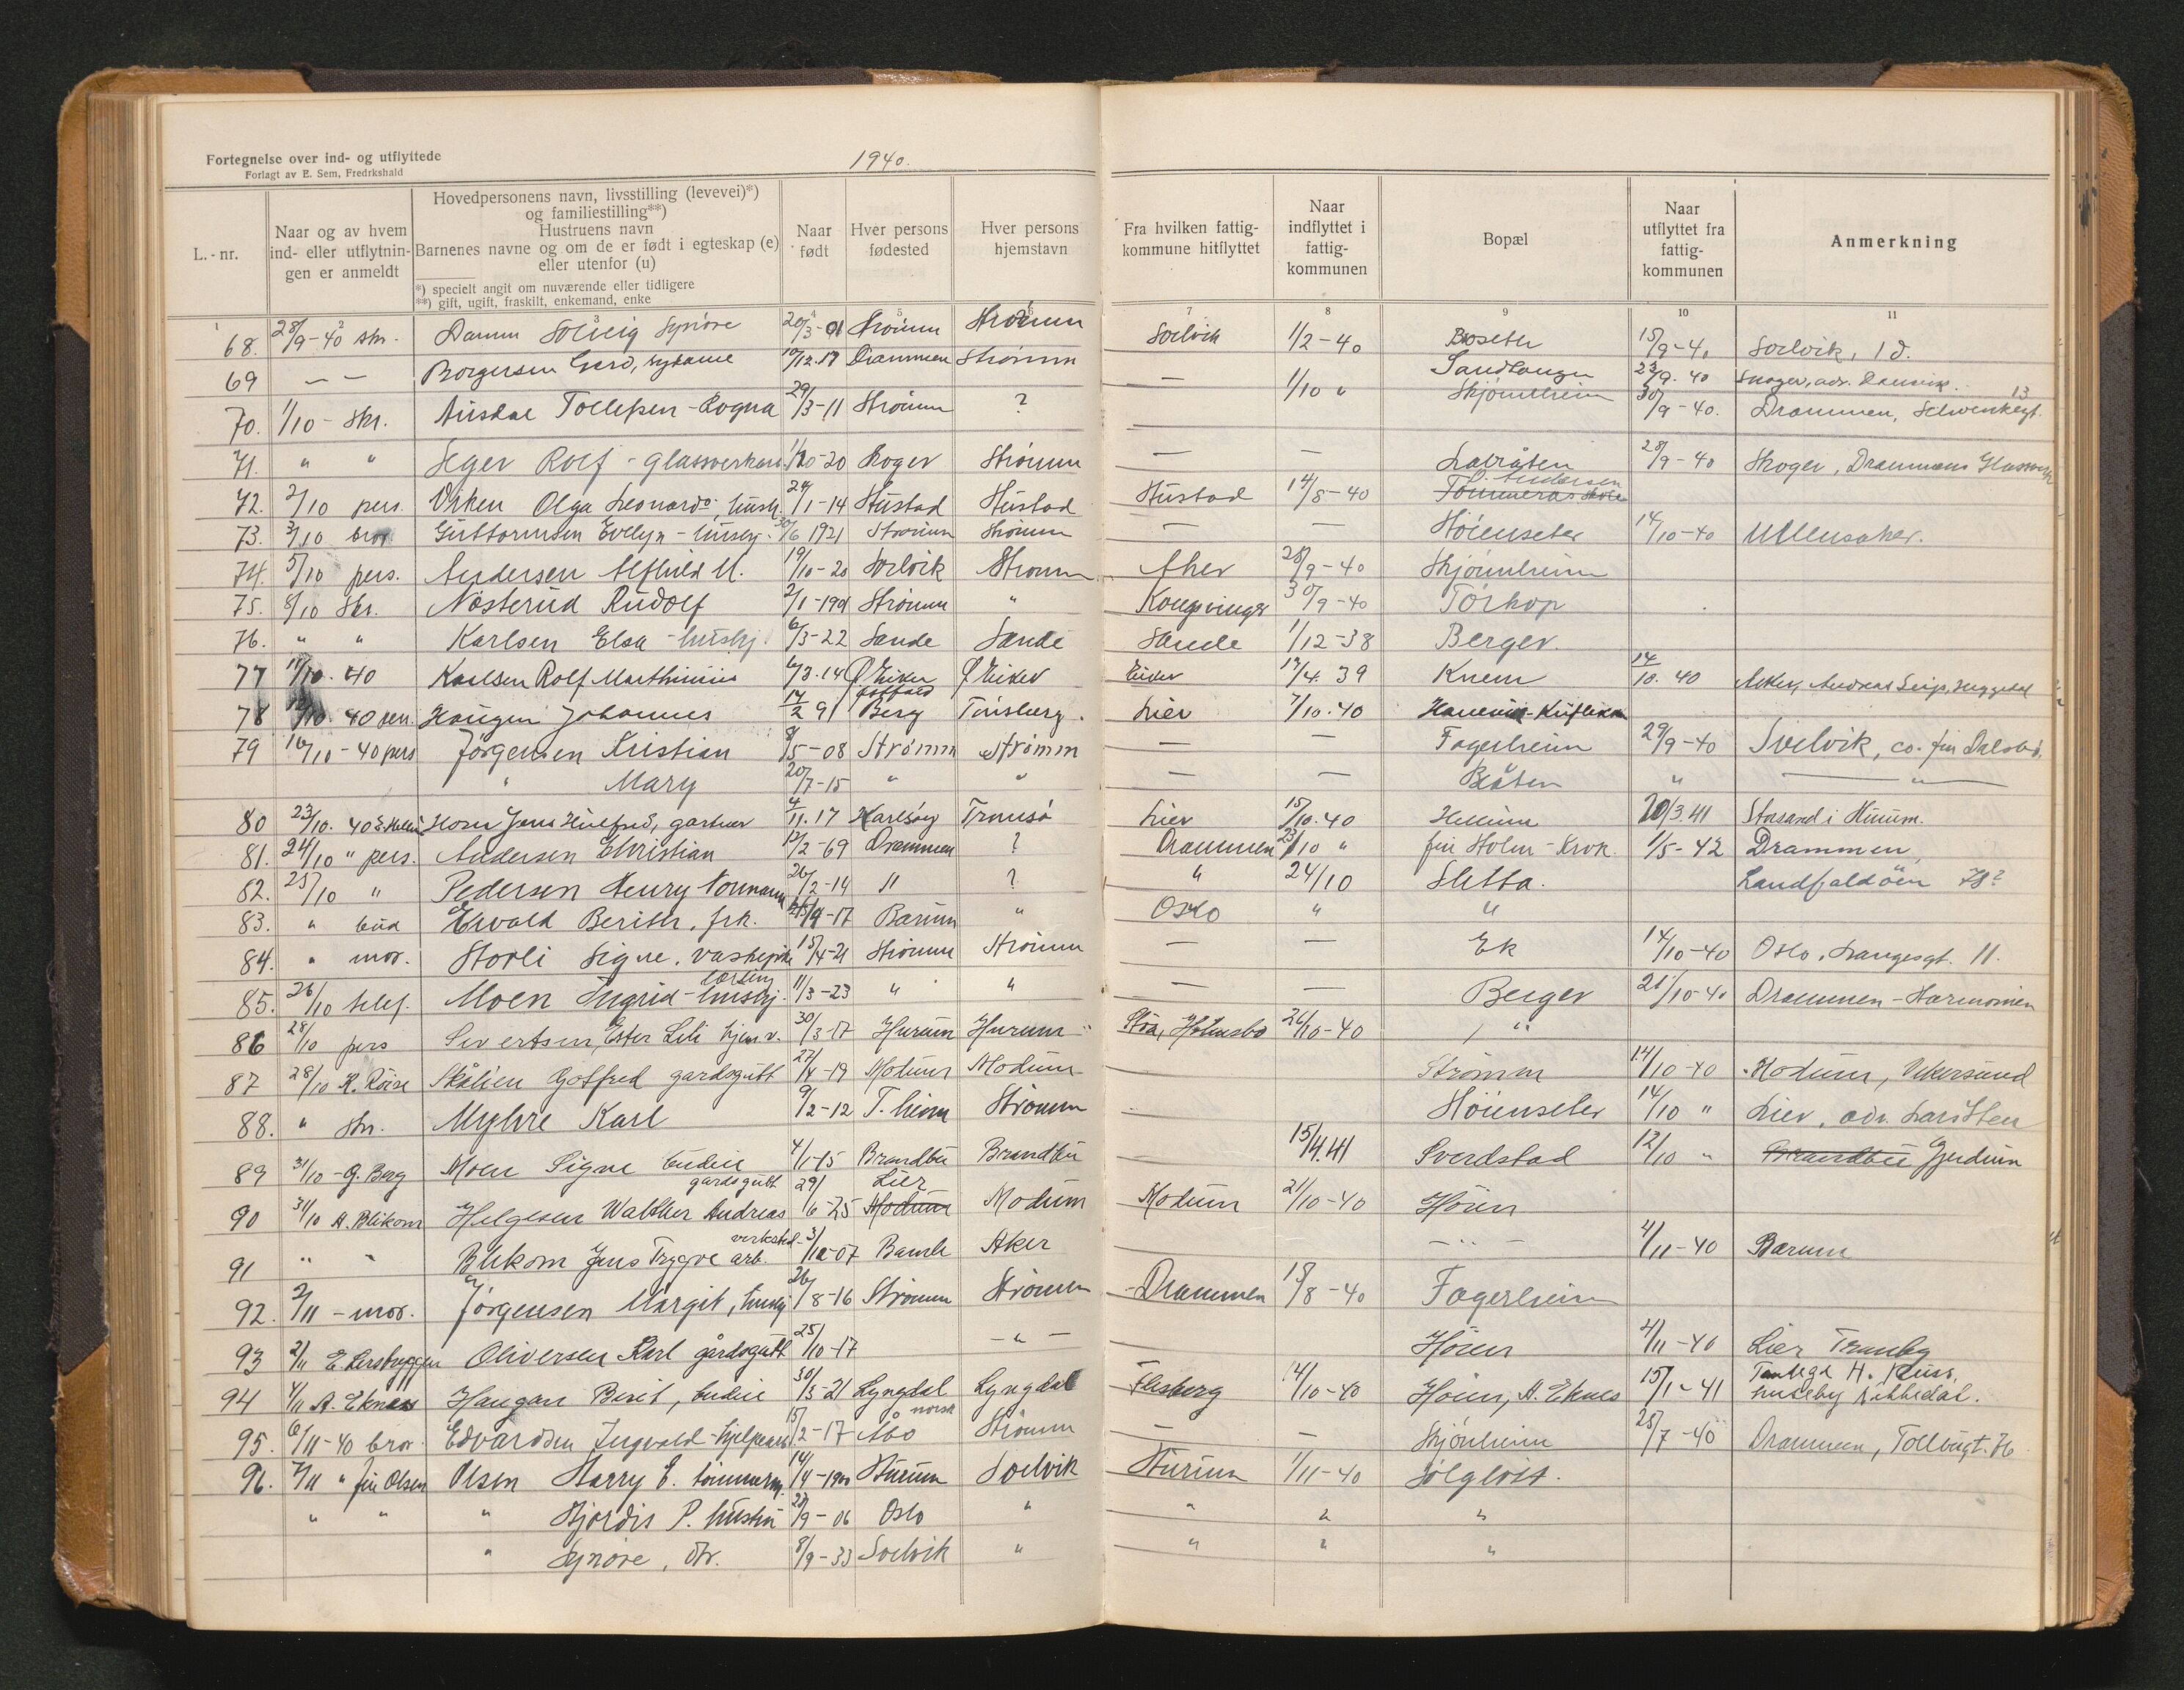 Fortegnelse over ind- og utflyttede
Forlagt av E. Sem, Fredrkshald
1940.
L.-nr.
Naar og av hvem ind- eller utflytningen er anmeldt
Hovedpersonens navn, livsstilling (levevei)*) og familiestilling**)
Hustruens navn
Barnenes navne og om de er født i egteskap (e) eller utenfor (u)
*) specielt angit om nuværende eller tidligere
**) gift, ugift, fraskilt, enkemand, enke
Naar født
Hver persons fødested
Hver persons hjemstavn
Fra hvilken fattigkommune hitflyttet
Naar indflyttet i fattigkommunen
Bopæl
Naar utflyttet fra fattigkommunen
Anmerkning
1 2 3 4 5 6 7 8 9 10 11
68. 28/9-40 skr. Damm Solveig Synøve 20/3-01 Strømm Strømm Svelvik 1/2-40 Boseth 15/9-40 Svelvik, 1 d.
69 — — Borgersen Gerd, sydame 10/12.17 Drammen Strømm — 1/10 " Sandtangen 23/9.40 Skoger, adr. Dansvik. 13
70. 1/10 - skr. Tollefsen - Rogna 29/3-11 Strømm ? — Skjønnheim 30/9-40. Drammen, Schwenckegt.
71. " " Seger Rolf - glassverksarb. 1/10-20 Skoger Strømm — — 28/9-40 Skoger, Drammens Glassverk
72. 2/10 pers. Virken Olga Leonarda, hush. 24/1-14 Hustad Hustad Hustad 14/8-40 Tømmerås skole Andersen
73. 3/10 bror Guttormsen Evelyn - hushj. 30/6 1921 Strømm Strømm — — Høienseter 14/10-40 Ullensaker.
74. 5/10 pers. Andersen Alfhild M. 19/10-20 Svelvik Strømm Aker 28/9-40 Skjønnheim
75. 8/10 skr. Nøsterud Rudolf 2/1-1901 Strømm " Kongsvinger 30/9-40 Torkop
76. " " Karlsen Elsa - hushj. 6/3-22 Sande Sande Sande 1/12-38 Berger.
77 11/10.40 Karlsen Rolf Marthinius 6/3.14 Ø Eiker Ø Eiker Eiker 17/4.39 Knem 14/10.40 Aker, Andreas
78 10.40 pers. Haugen Johannes 17/2 91 Berg Tønsberg. Lier 7/10.40 Hanevik-Kniplia
79 16/10-40 pers Jørgensen Kristian 8/5-08 Strømm Strømm — — Fagerheim 29/9-40 Svelvik, co. fru Dalsbø.
" Mary 20/7-15 " " — — Bråten " — " —
80 23/10.40 Horn Jens Huitfred, gartner 4/11.17 Karlsøy Tromsø Lier 15/10.40 Hellum 20/3.41 Storsand i Hurum.
81. 24/10 " pers. Andersen Christian 13/2-69 Drammen ? Drammen 23/10 " fru Holm - Krok 1/5-42 Drammen,
82. 25/10 " Pedersen Henry Normann 26/2-14 " ? " 24/10 Sletta. Landfaldøen 78?
83. " bud Ewald Berith, frk. /9-17 Bærum " Oslo " "
84. " mor. Storli Signe, vaskepike 15/4-21 Strømm Strømm — — Ek 14/10-40 Oslo, Langesgt. 11.
85. 26/10 telef. Moen Ingrid - hushj. lærling 11/3-23 " " — — Berger 21/10-40 Drammen - Harmonien
86 28/10 pers Sivertsen, Ester Lili hjemv. 30/3-17 Hurum Hurum Støa, Holmsbo 26/10-40 "
87 28/10 K. Røise Skålien Gotfred gardsgutt 27/4-19 Modum Modum Strømm 14/10-40 Modum, Vikersund
88. " skr. Myhre Karl 9/2-12 T.heim Strømm Høienseter 14/10 " Lier, adr. Lars Sten
89 31/10 - G. Berg Moen Signe budeie 4/1-15 Brandbu Brandbu 15/4.41 Sverdstad 12/10 " Brandbu Gjerdrum
90 31/10 A. Blikom Helgesen Walther Andreas gardsgutt 29/6-25 Modum Lier Modum Modum 21/10-40 Høien
91 " " Blikom Jens Trygve verksted-arb. 3/12-07 Bamle Aker — " — 4/11-40 Bærum
92. 2/11 - mor. Jørgensen Margit, hushj 26/8-16 Strømm Strømm Drammen 15/8-40 Fagerheim
93 2/11 E. Lersbryggen Oliversen Karl gårdsgutt 25/10-17 — " — Høien 4/11-40 Lier Tranby
94 4/11 A. Eknes Haugan Berit, budeie 30/3-21 Lyngdal Lyngdal Flesberg 14/10-40 Høien, A. Eknes 15/1-41 Tannlege H. Huseby
95. 6/11-40 bror. Edvardsen Ingvald - hjelpearb 15/2-17 Åbo norsk Strømm — — Skjønheim 25/7-40 Drammen, Tollbugt. 76
96. 7/11 " fru Olsen Olsen Harry E. tømmerm. 14/4-1900 Hurum Svelvik Hurum 1/11-40 Solgløtt.
" " " Hjørdis P. hustru 27/9-06 Oslo " " " "
" Synøve, dtr. 8/9-33 Svelvik " " " "